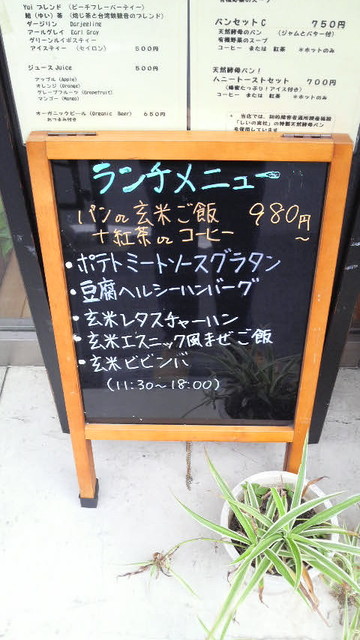 Yui ブレンド (ピーチフレーバーティー)
ダージリン Darjeeling
アールグレイ Earl Gray
グリーンルイボスティー
アイスティー (セイロン) 500円
ジュース Juice 500円
アップル (Apple)
オレンジ (Orange)
グレープフルーツ (Grapefruit)
マンゴー (Mango)
オーガニックビール (Organic Beer) 650円
おつまみ付き
パンセットC 750円
天然酵母パン (ジャムとバター付)
有機野菜のスープ
コーヒー または 紅茶 ※ホットのみ
天然酵母パン!
ハニートーストセット 700円
(蜂蜜たっぷり!アイス付き)
コーヒー または 紅茶 ※ホットのみ
ランチメニュー
パンor玄米ご飯 980円~
+紅茶orコーヒー
・ポテトミートソースグラタン
・豆腐ヘルシーハンバーグ
・玄米レタスチャーハン
・玄米エスニック風まぜご飯
・玄米ビビンバ
(11:30~18:00)